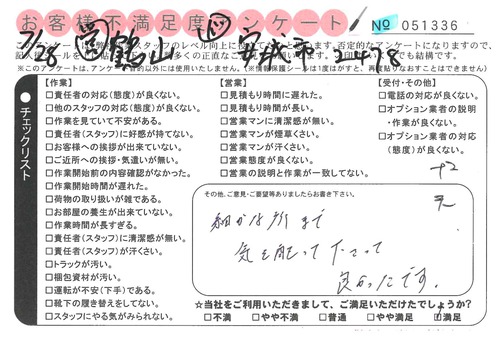 お客様不満足度アンケート
№ 051336
7/28 鶴山 安城市 32478
※このアンケートは、アンケート目的以外には使用いたしません。(※情報保護シールは1度はがすと、再度貼りなおすことはできません)
チェックリスト
【作業】
□責任者の対応(態度)が良くない。
□他のスタッフの対応(態度)が良くない。
□作業を見ていて不安がある。
□責任者(スタッフ)に好感が持てない。
□お客様への挨拶が出来ていない。
□ご近所への挨拶・気遣いが無い。
□作業開始前の内容確認がなかった。
□作業開始時間が遅れた。
□荷物の取り扱いが雑である。
□お部屋の養生が出来ていない。
□作業時間が長すぎる。
□責任者(スタッフ)に清潔感が無い。
□責任者(スタッフ)が汗くさい。
□トラックが汚い。
□梱包資材が汚い。
□運転が不安(下手)である。
□靴下の履き替えをしてない。
□スタッフにやる気がみられない。
【営業】
□見積もり時間に遅れた。
□見積もり時間が長い。
□営業マンに清潔感が無い。
□営業マンが煙草くさい。
□営業マンが汗くさい。
□営業態度が良くない。
□営業の説明と作業が一致してない。
【受付・その他】
□電話の対応が良くない。
□オプション業者の説明
・作業が良くない。
□オプション業者の対応
(態度)が良くない。
その他、ご意見・ご要望等ありましたらお書き下さい。
細かな所まで
気を配って下さって
良かったです。
☆当社をご利用いただきまして、ご満足いただけたでしょうか?
□不満 □やや不満 □普通 □やや満足 □満足